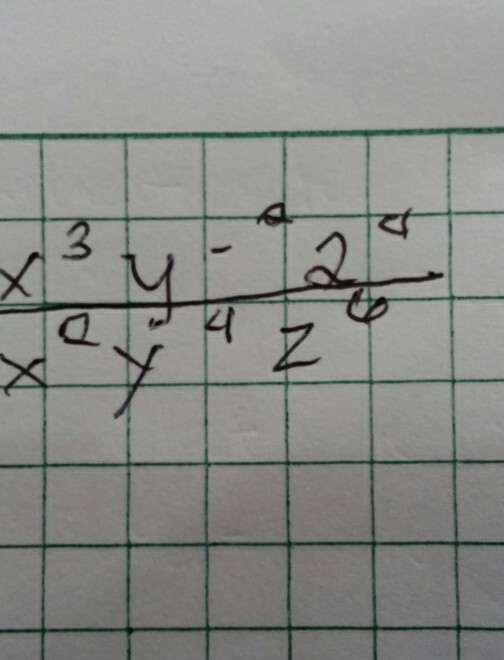 x³ y⁻² 2⁴
x² y⁴ z⁶